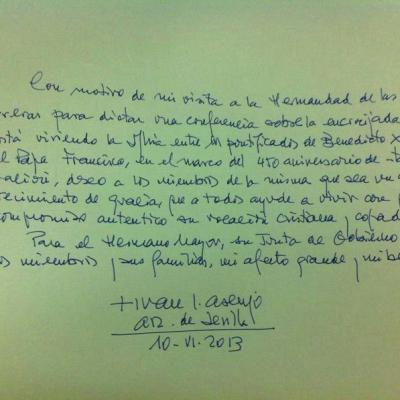 Con motivo de mi visita a la Hermandad de las
para dictar una conferencia sobre la encrucijada
está viviendo la entre los pontificados de Benedicto X
el Papa Francisco, en el marco del 450 aniversario de
deseo a los miembros de la misma que sea un
de gracia, que a todos ayude a vivir con
compromiso autentico su vocación cristiana y cofrade
Para el Hermano Mayor, su Junta de Gobierno
miembros y sus familias, mi afecto grande y mi be
+ Juan J. Asenjo
arz. de Sevilla
10-VI-2013